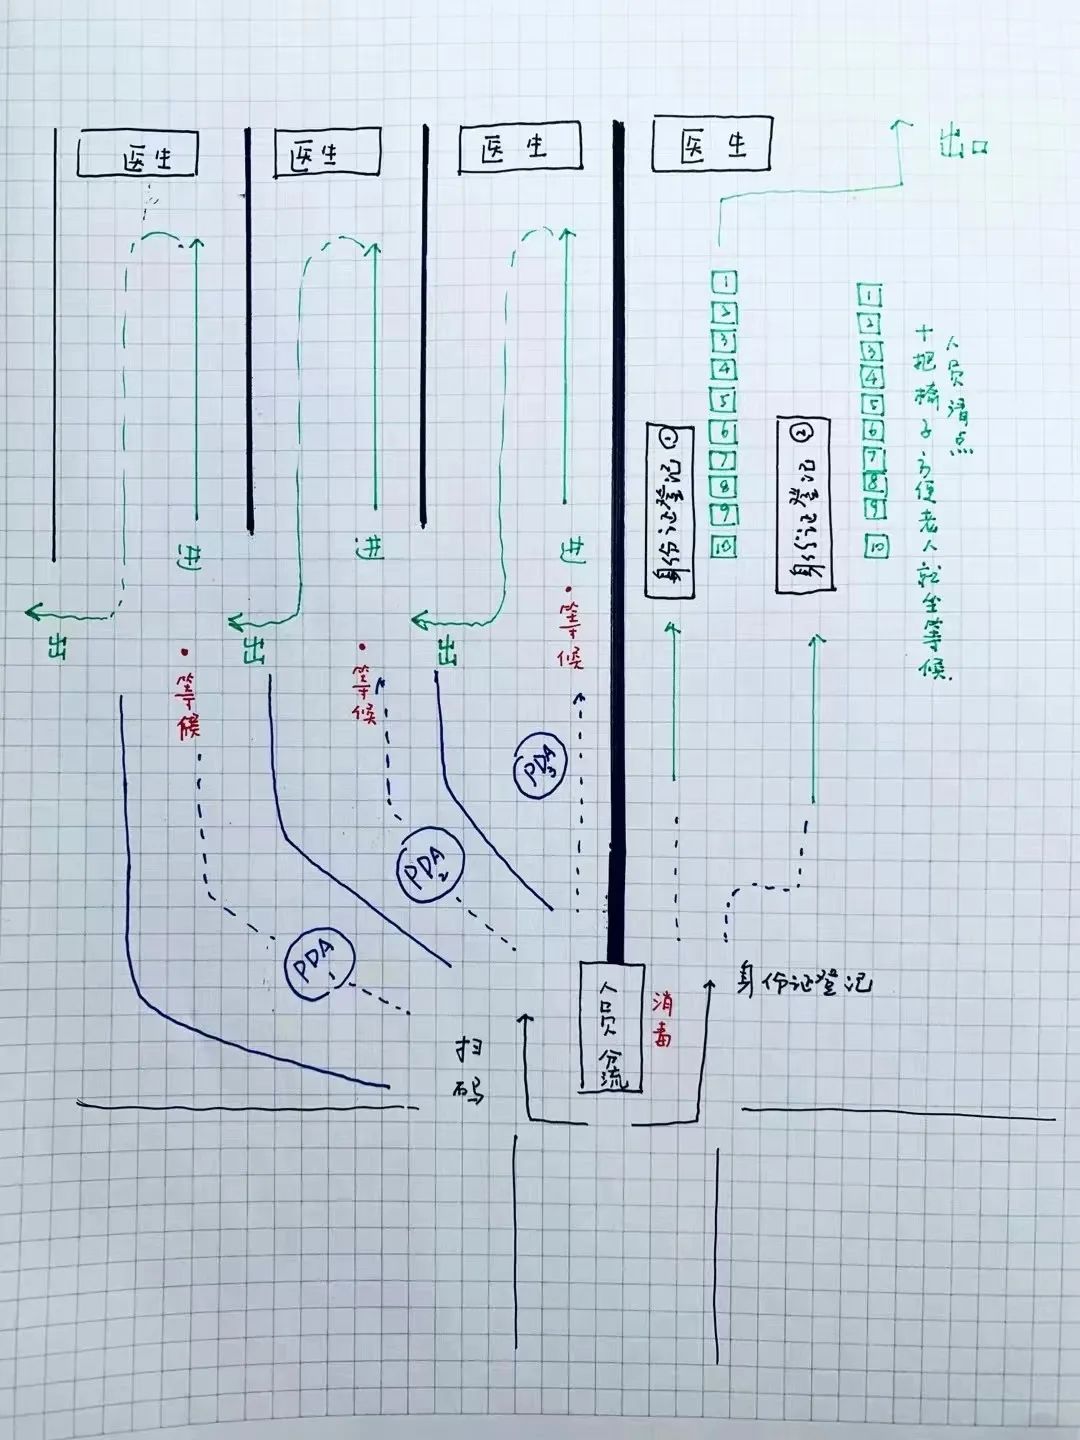 医生
医生
医生
医生
出口
1
2
3
4
5
6
7
8
9
10
1
2
3
4
5
6
7
8
9
10
人员清点
十把椅子方便老人就坐等候.
身份证登记①
身份证登记②
进
进
进
出
出
出
·等候
·等候
·等候
PDA3
PDA2
PDA1
身份证登记
人员分流
消毒
扫码